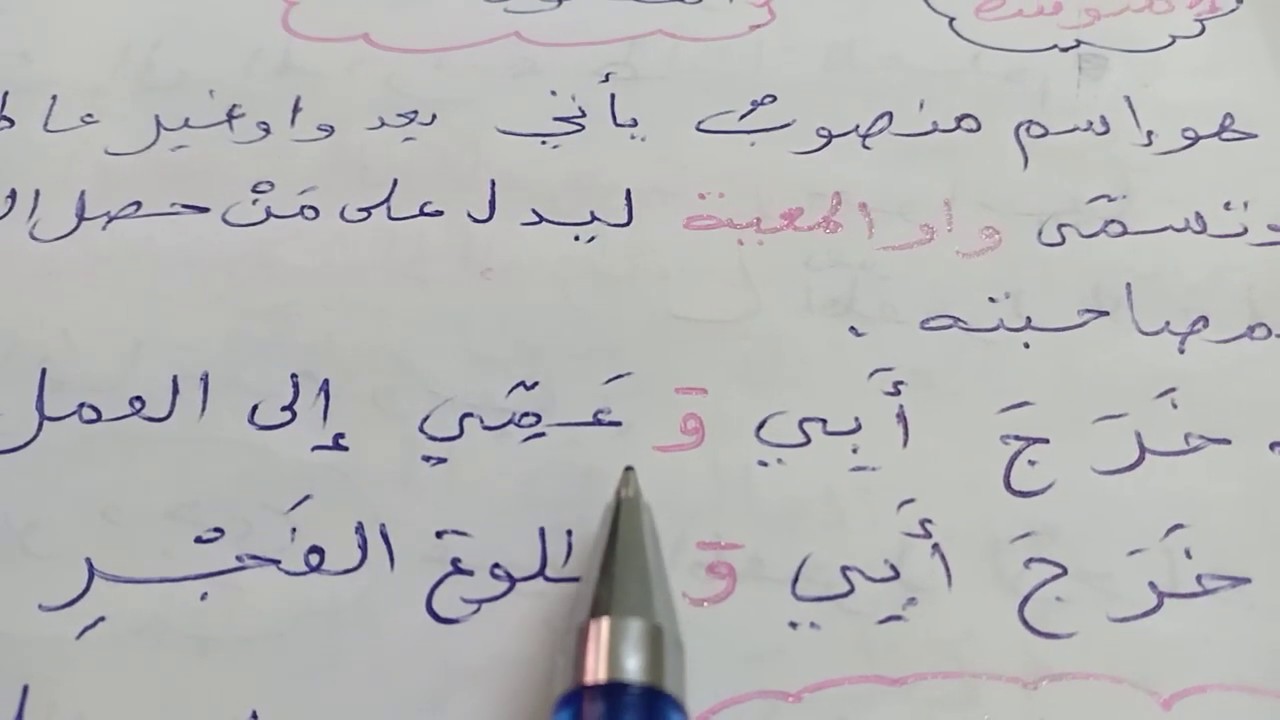 هو إسم منصوبٌ يأتي بعد واو غير
وتسمّى واو المعية ليدل على مَنْ حصل
مصاحبته .
خَرَجَ أَبِي وَ عَمِّي إلى العمل
خَرَجَ أَبِي وَ طلوع الفَجْرِ